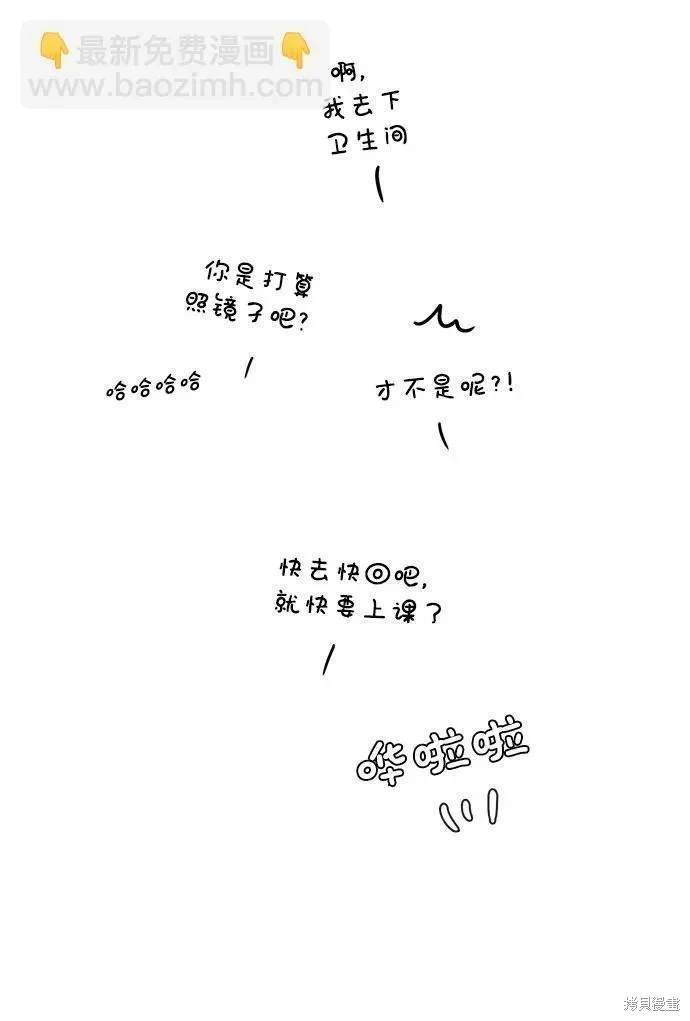 👇最新免费漫画👇
www.baozimh.com
啊,
我去下
卫生间
你是打算
照镜子吧?
哈哈哈哈
才不是呢?!
快去快回吧,
就快要上课了
哗啦啦
拷貝漫畫